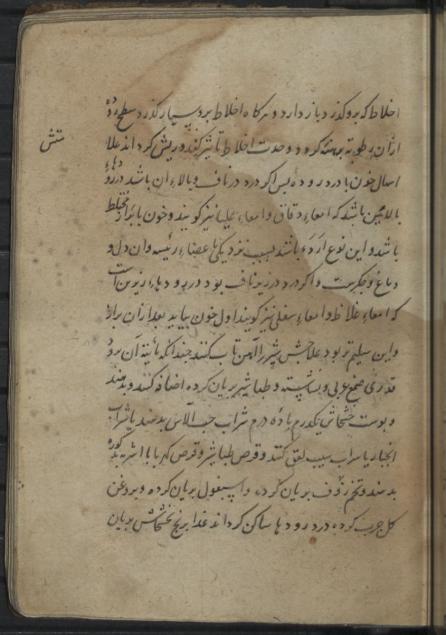 اخلاط که برو گذرد باز دارد و هرگاه اخلاط برو بسیار گذرد سطح روده
ازان رطوبه برهنه گردد وحدت اخلاط تاثیر کند و ریش گرداند علا
اسهال خون با درد روده پس اگر درد در ناف و بالاء آن باشد در رودهاء
بالائین باشد که امعاء دقاق و امعاء علیا نیز گویند و خون با براز مختلط
باشد و این نوع اردء باشد بسبب نزدیکی باعضاء رئیسه وان دل و
دماغ و جگرست و اگر درد در زیر ناف بود در رودهاء زیرین است
که امعاء غلاظ و امعاء سفلی نیز گویند اول خون بیاید بعد ازان براز
واین سلیم تر بود علاجش شیر را آهن تاب کنند چندانکه مائیة آن برود
قدری صمغ عربی و نشاسته و طباشیر بریان کرده اضافه کنند و بدهند
و پوست خشخاش یکدرم با ده درم شراب حب الآس بدهند یا شراب
انجبار یا شراب سیب لعق کنند و قرص طباشیر و قرص کهربا با اشربه
بدهند و تخم بریان کرده و اسپغول بریان کرده و بروغن
گل چرب کرده درد رودها ساکن گرداند غذا برنج خشخاش بریان